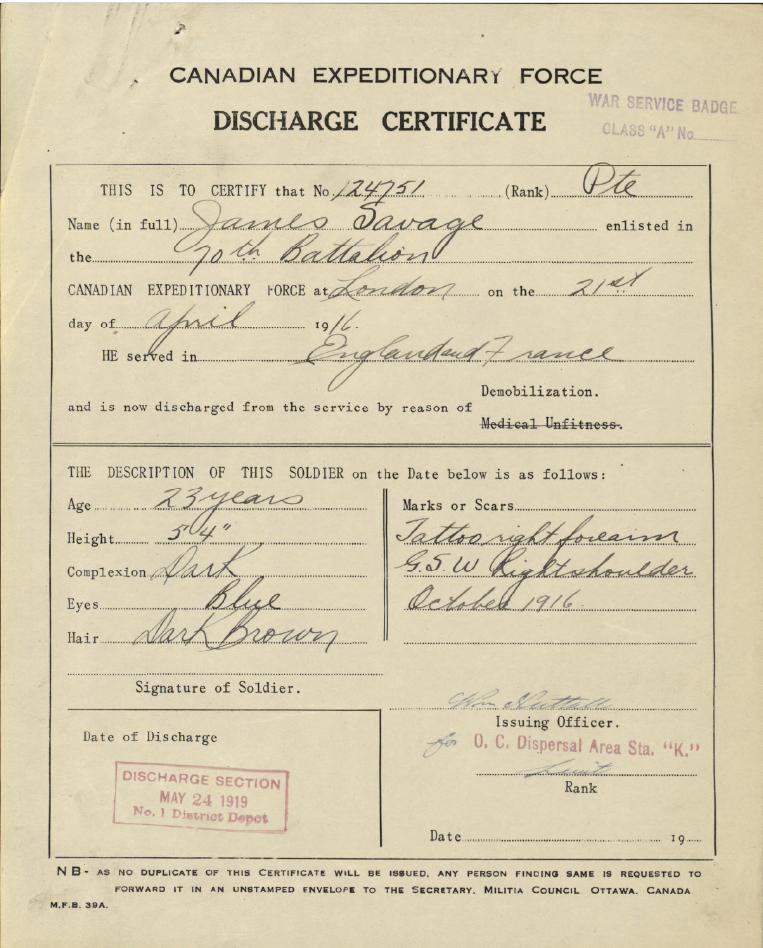 CANADIAN EXPEDITIONARY FORCE
WAR SERVICE BADGE
CLASS "A" No
DISCHARGE CERTIFICATE
THIS IS TO CERTIFY that No. 124751 (Rank) Pte
Name (in full) James Savage enlisted in
the 70th Battalion
CANADIAN EXPEDITIONARY FORCE at London on the 21st
day of April 1916.
HE served in England and France
and is now discharged from the service by reason of Demobilization.
Medical Unfitness.
THE DESCRIPTION OF THIS SOLDIER on the Date below is as follows:
Age 23 years
Height 5' 4"
Complexion Dark
Eyes Blue
Hair Dark Brown
Signature of Soldier.
Marks or Scars
Tattoo right forearm
G.S.W Right shoulder
October 1916.
Date of Discharge
DISCHARGE SECTION
MAY 24 1919
No. 1 District Depot
Wm
Issuing Officer.
for O. C. Dispersal Area Sta. "K."
Rank
Date 19
NB- AS NO DUPLICATE OF THIS CERTIFICATE WILL BE ISSUED, ANY PERSON FINDING SAME IS REQUESTED TO
FORWARD IT IN AN UNSTAMPED ENVELOPE TO THE SECRETARY, MILITIA COUNCIL OTTAWA. CANADA
M.F.B. 39A.